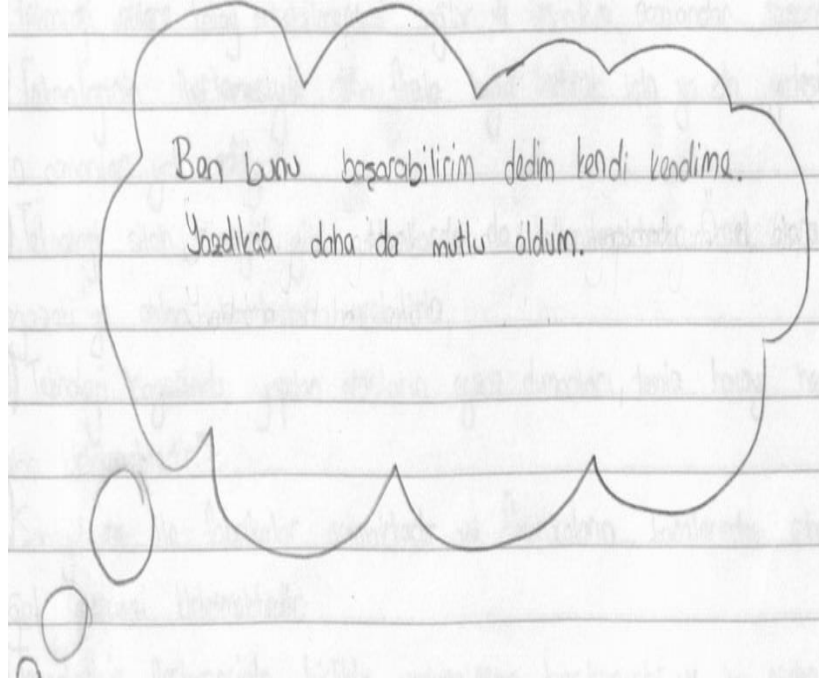 Ben bunu başarabilirim dedim kendi kendime.
Yazdıkça daha da mutlu oldum.